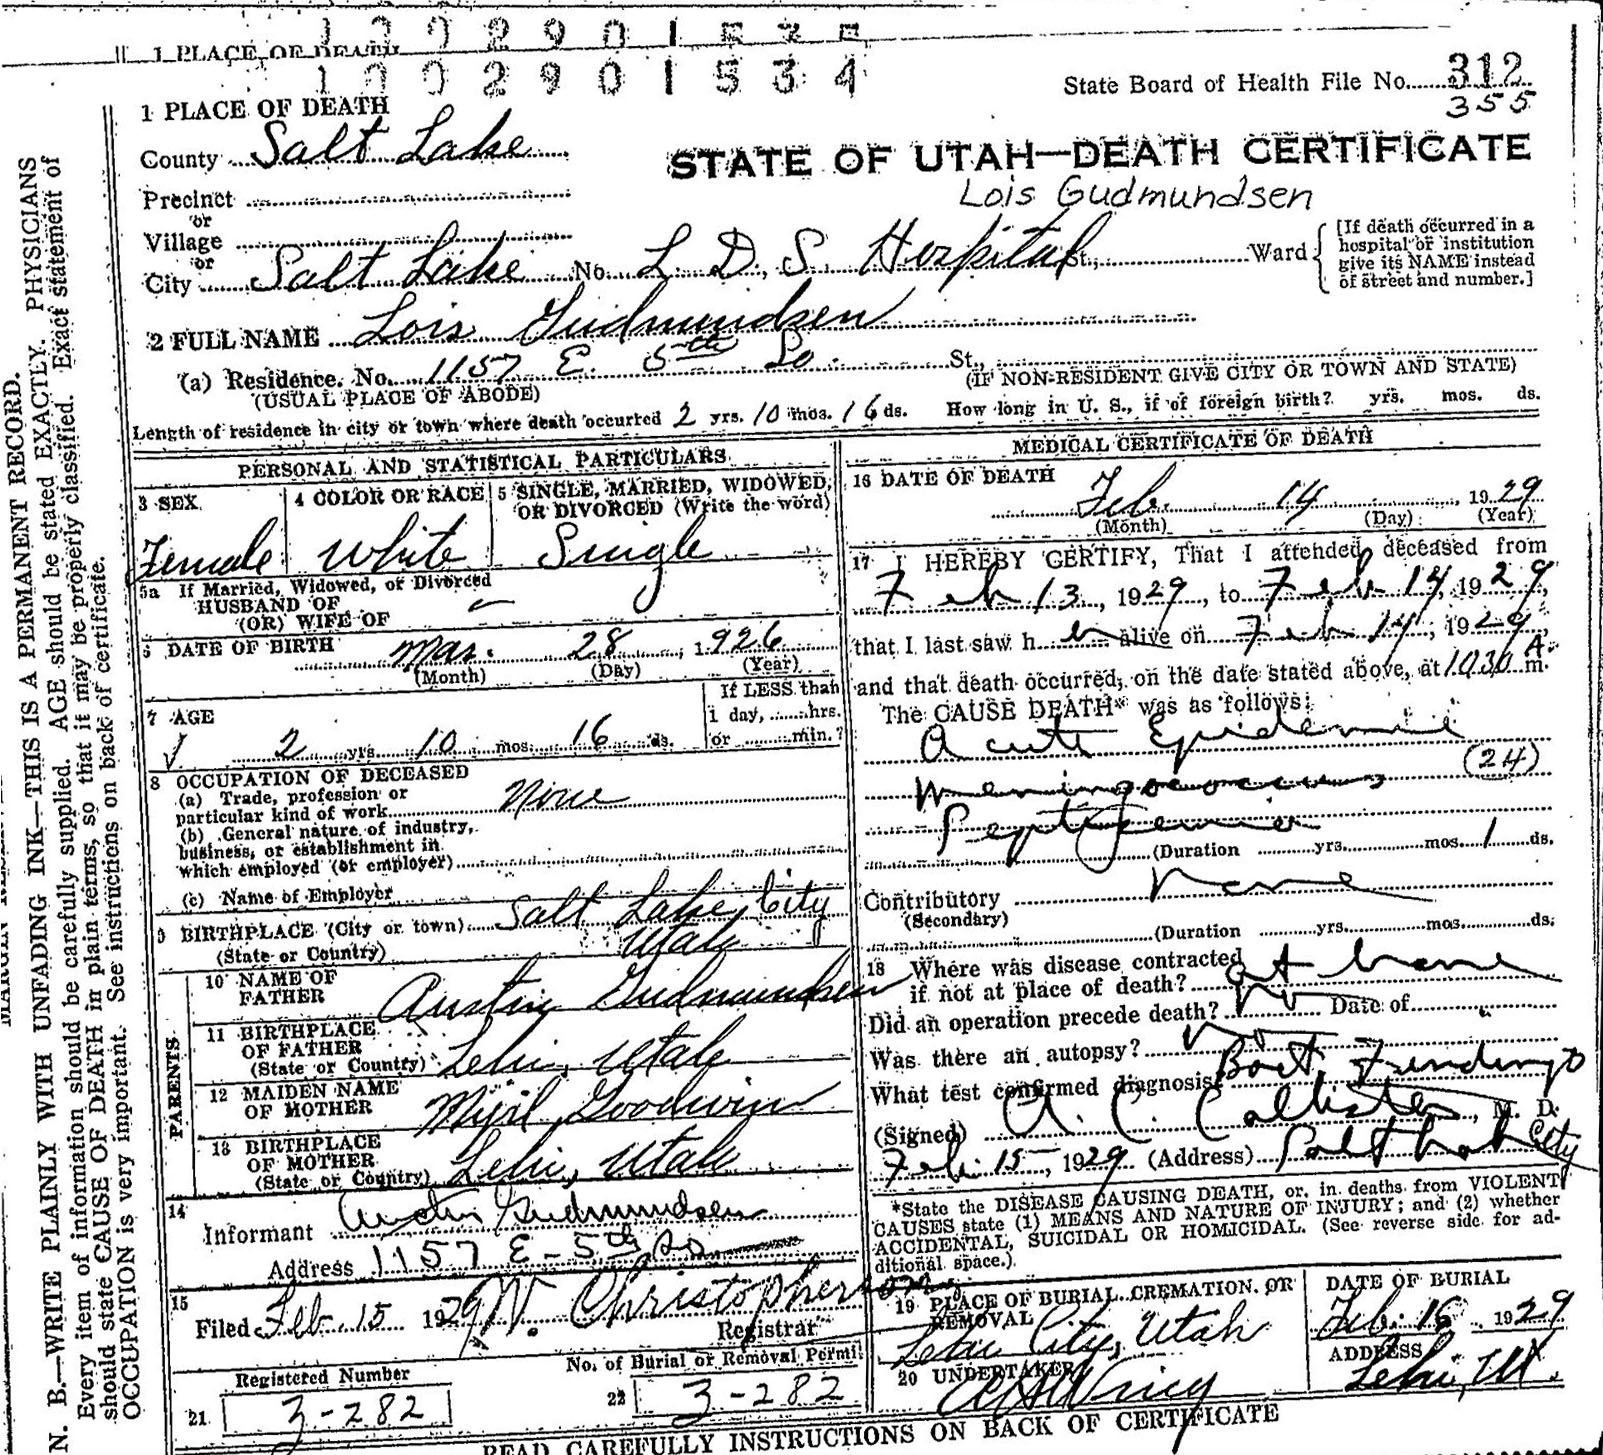 1 PLACE OF DEATH
1 0 0 2 9 0 1 5 3 4
State Board of Health File No. 312
355
1 PLACE OF DEATH
County Salt Lake
STATE OF UTAH—DEATH CERTIFICATE
Precinct
Lois Gudmundsen
or
Village
or
City Salt Lake No. L. D. S. Hospital St., Ward
[If death occurred in a
hospital or institution
give its NAME instead
of street and number.]
2 FULL NAME Lois Gudmundsen
(a) Residence. No. 1157 E. 5th So. St.,
(USUAL PLACE OF ABODE)
(IF NON-RESIDENT GIVE CITY OR TOWN AND STATE)
Length of residence in city or town where death occurred 2 yrs. 10 mos. 16 ds. How long in U. S., if of foreign birth? yrs. mos. ds.
PERSONAL AND STATISTICAL PARTICULARS
3 SEX
Female
4 COLOR OR RACE
White
5 SINGLE, MARRIED, WIDOWED,
OR DIVORCED (Write the word)
Single
5a If Married, Widowed, or Divorced
HUSBAND OF
(OR) WIFE OF
6 DATE OF BIRTH Mar. 28, 1926
(Month) (Day) (Year)
7 AGE
2 yrs. 10 mos. 16 ds.
If LESS than
1 day, hrs.
or min.?
8 OCCUPATION OF DECEASED
(a) Trade, profession or
particular kind of work None
(b) General nature of industry,
business, or establishment in
which employed (or employer)
(c) Name of Employer
9 BIRTHPLACE (City or town) Salt Lake City
(State or Country) Utah
PARENTS
10 NAME OF
FATHER Austin Gudmundsen
11 BIRTHPLACE
OF FATHER
(State or Country) Lehi, Utah
12 MAIDEN NAME
OF MOTHER Goodwin
13 BIRTHPLACE
OF MOTHER
(State or Country) Lehi, Utah
14
Informant Austin Gudmundsen
Address 1157 E - 5th So
15
Filed Feb. 15 1929 W. Christopherson
Registrar
Registered Number
21 3-282
No. of Burial or Removal Permit
22 3-282
MEDICAL CERTIFICATE OF DEATH
16 DATE OF DEATH
Feb. 14, 1929
(Month) (Day) (Year)
17 I HEREBY CERTIFY, That I attended deceased from
Feb 13, 1929, to Feb 14, 1929,
that I last saw h er alive on Feb 14, 1929,
and that death occurred, on the date stated above, at 1030 A. m.
The CAUSE DEATH* was as follows:
Acute Epidemic
(24)
Meningococcus
Septicemia
(Duration yrs. mos. 1 ds.
Contributory None
(Secondary)
(Duration yrs. mos. ds.
18 Where was disease contracted
if not at place of death? at home
Did an operation precede death? No Date of
Was there an autopsy? No
What test confirmed diagnosis? Bact. Findings
(Signed) A. C. Callister, M. D.
Feb. 15, 1929 (Address) Salt Lake City
*State the DISEASE CAUSING DEATH, or, in deaths from VIOLENT
CAUSES state (1) MEANS AND NATURE OF INJURY; and (2) whether
ACCIDENTAL, SUICIDAL OR HOMICIDAL. (See reverse side for ad-
ditional space.)
19 PLACE OF BURIAL, CREMATION, OR
REMOVAL
Lehi City, Utah
DATE OF BURIAL
Feb. 16 1929
20 UNDERTAKER
ADDRESS
Lehi, Ut.
READ CAREFULLY INSTRUCTIONS ON BACK OF CERTIFICATE
N. B.—WRITE PLAINLY WITH UNFADING INK—THIS IS A PERMANENT RECORD.
Every item of information should be carefully supplied. AGE should be stated EXACTLY. PHYSICIANS
should state CAUSE OF DEATH in plain terms, so that it may be properly classified. Exact statement of
OCCUPATION is very important. See instructions on back of certificate.